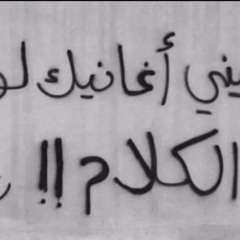 يني أغانيك لو
الكلام !!